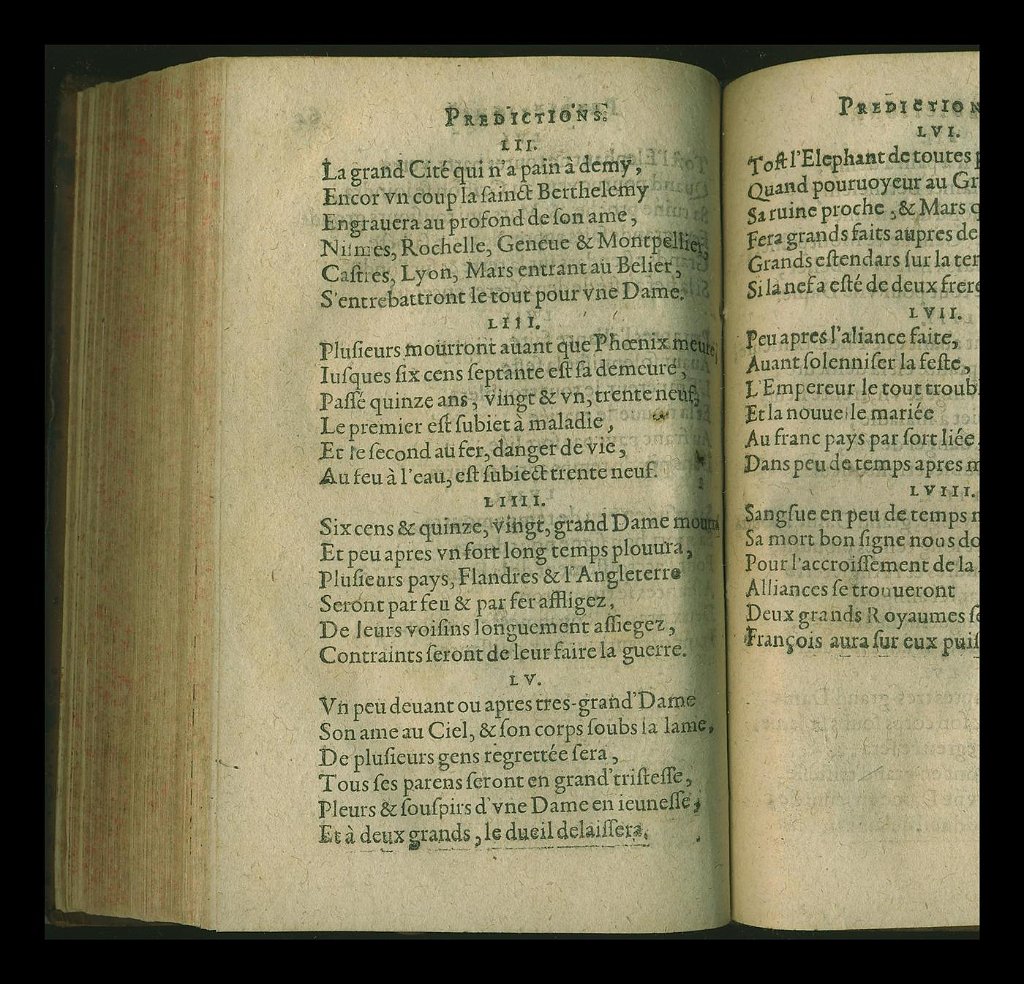 PREDICTIONS.
LII.
La grand Cité qui n'a pain à demy,
Encor vn coup la ſainct Berthelemy
Engrauera au profond de ſon ame,
Nimes, Rochelle, Geneue & Montpellier,
Caſtres, Lyon, Mars entrant au Belier,
S'entrebattront le tout pour vne Dame.
LIII.
Pluſieurs mourront auant que Phœnix meure,
Iuſques ſix cens ſeptante eſt ſa demeure,
Paſſé quinze ans, vingt & vn, trente neuf,
Le premier eſt ſubiet à maladie,
Et le ſecond au fer, danger de vie,
Au feu à l'eau, eſt ſubiect trente neuf.
LIIII.
Six cens & quinze, vingt, grand Dame mourra,
Et peu apres vn fort long temps plouura,
Pluſieurs pays, Flandres & l'Angleterre
Seront par feu & par fer affligez,
De leurs voiſins longuement aſſiegez,
Contraints ſeront de leur faire la guerre.
LV.
Vn peu deuant ou apres tres-grand'Dame
Son ame au Ciel, & ſon corps ſoubs la lame,
De pluſieurs gens regrettée ſera,
Tous ſes parens ſeront en grand'triſteſſe,
Pleurs & ſouſpirs d'vne Dame en ieuneſſe,
Et à deux grands, le dueil delaiſſera.
PREDICTION
LVI.
Toſt l'Elephant de toutes
Quand pouruoyeur au Gr
Sa ruine proche, & Mars q
Fera grands faits aupres de
Grands eſtendars ſur la ter
Si la nef a eſté de deux frere
LVII.
Peu apres l'aliance faite,
Auant ſolenniſer la feſte,
L'Empereur le tout troub
Et la nouuelle mariée
Au franc pays par ſort liée
Dans peu de temps apres m
LVIII.
Sangſue en peu de temps m
Sa mort bon ſigne nous do
Pour l'accroiſſement de la
Alliances ſe trouueront
Deux grands Royaumes ſe
François aura ſur eux puiſ